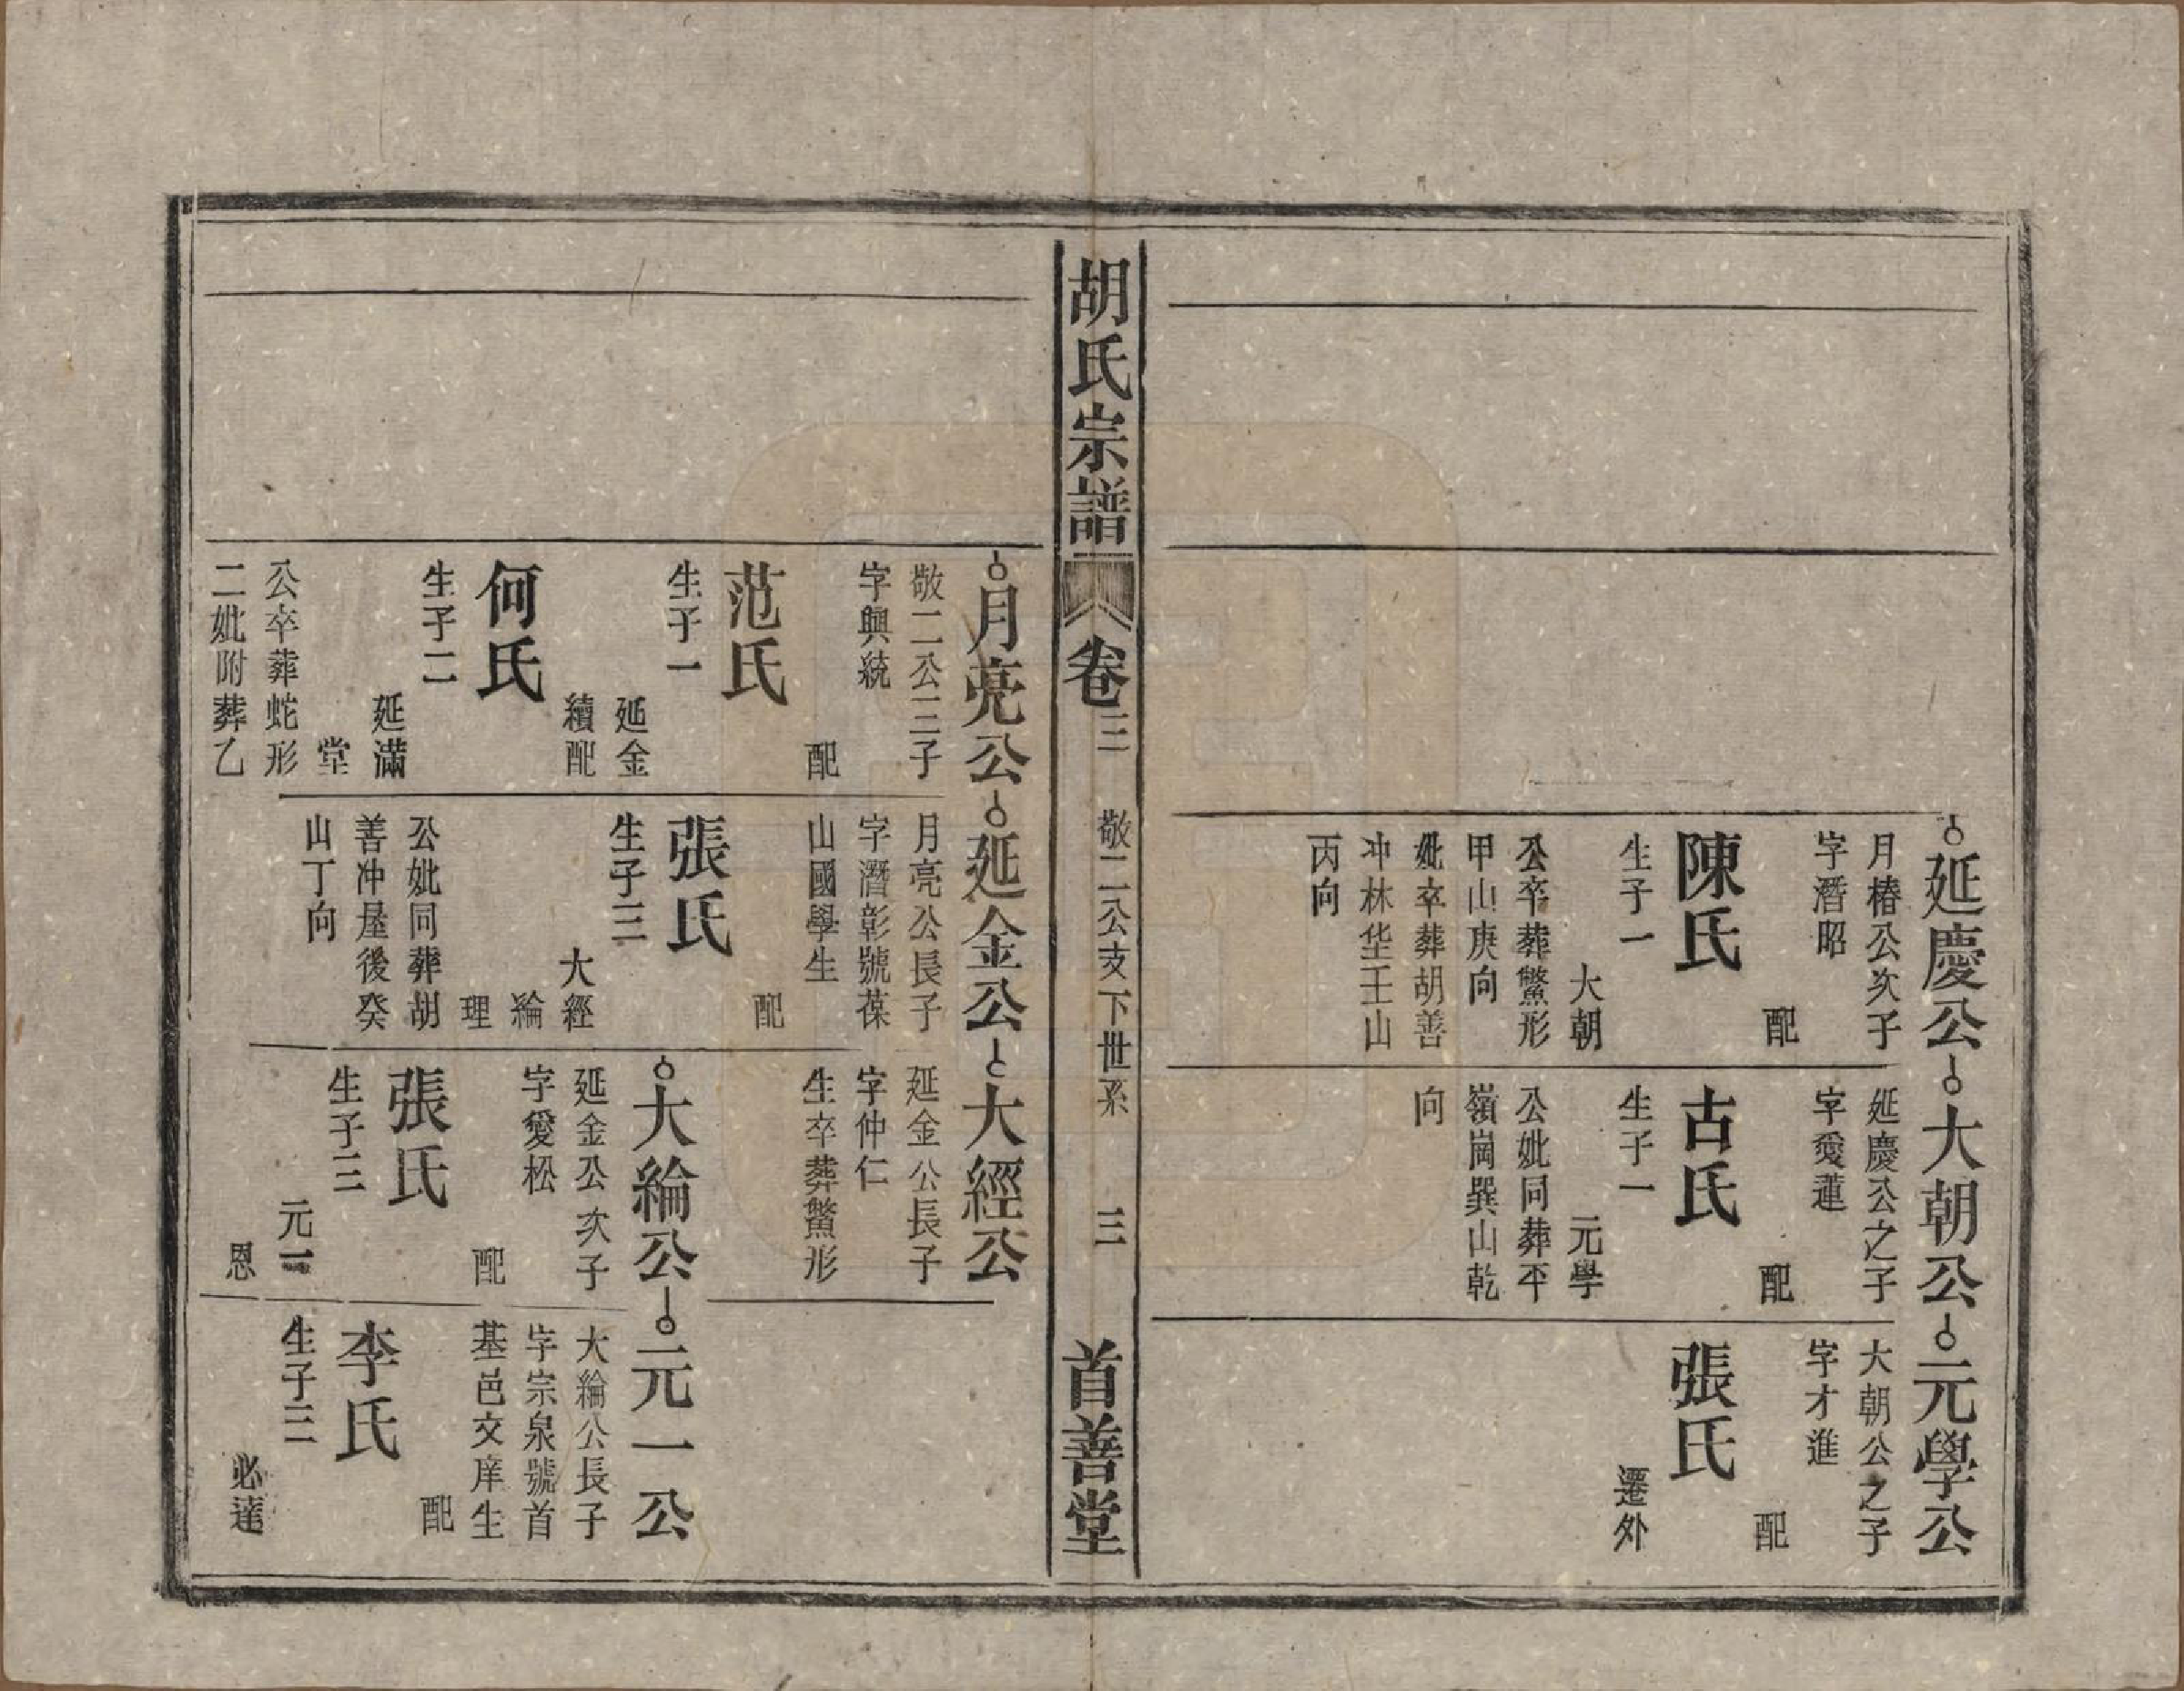 延慶公
月椿公次子
字潛昭
配
陳氏
生子一
大朝
公卒葬鱉形
甲山庚向
妣卒葬胡善
冲林垈壬山
丙向
大朝公
延慶公之子
字愛蓮
配
古氏
生子一
元學
公妣同葬平
嶺崗巽山乾
向
元學公
大朝公之子
字才進
配
張氏
遷外
胡氏宗譜
卷三
敬二公支下世系
三
首善堂
月亮公
敬二公三子
字興統
配
范氏
生子一
延金
續配
何氏
生子二
延滿
堂
公卒葬蛇形
二妣附葬乙
延金公
月亮公長子
字潛彰號葆
山國學生
配
張氏
生子三
大經
綸
理
公妣同葬胡
善冲屋後癸
山丁向
大經公
延金公長子
字仲仁
生卒葬鱉形
大綸公
延金公次子
字愛松
配
張氏
生子三
元一
恩
元一公
大綸公長子
字宗泉號首
基邑文庠生
配
李氏
生子三
必達